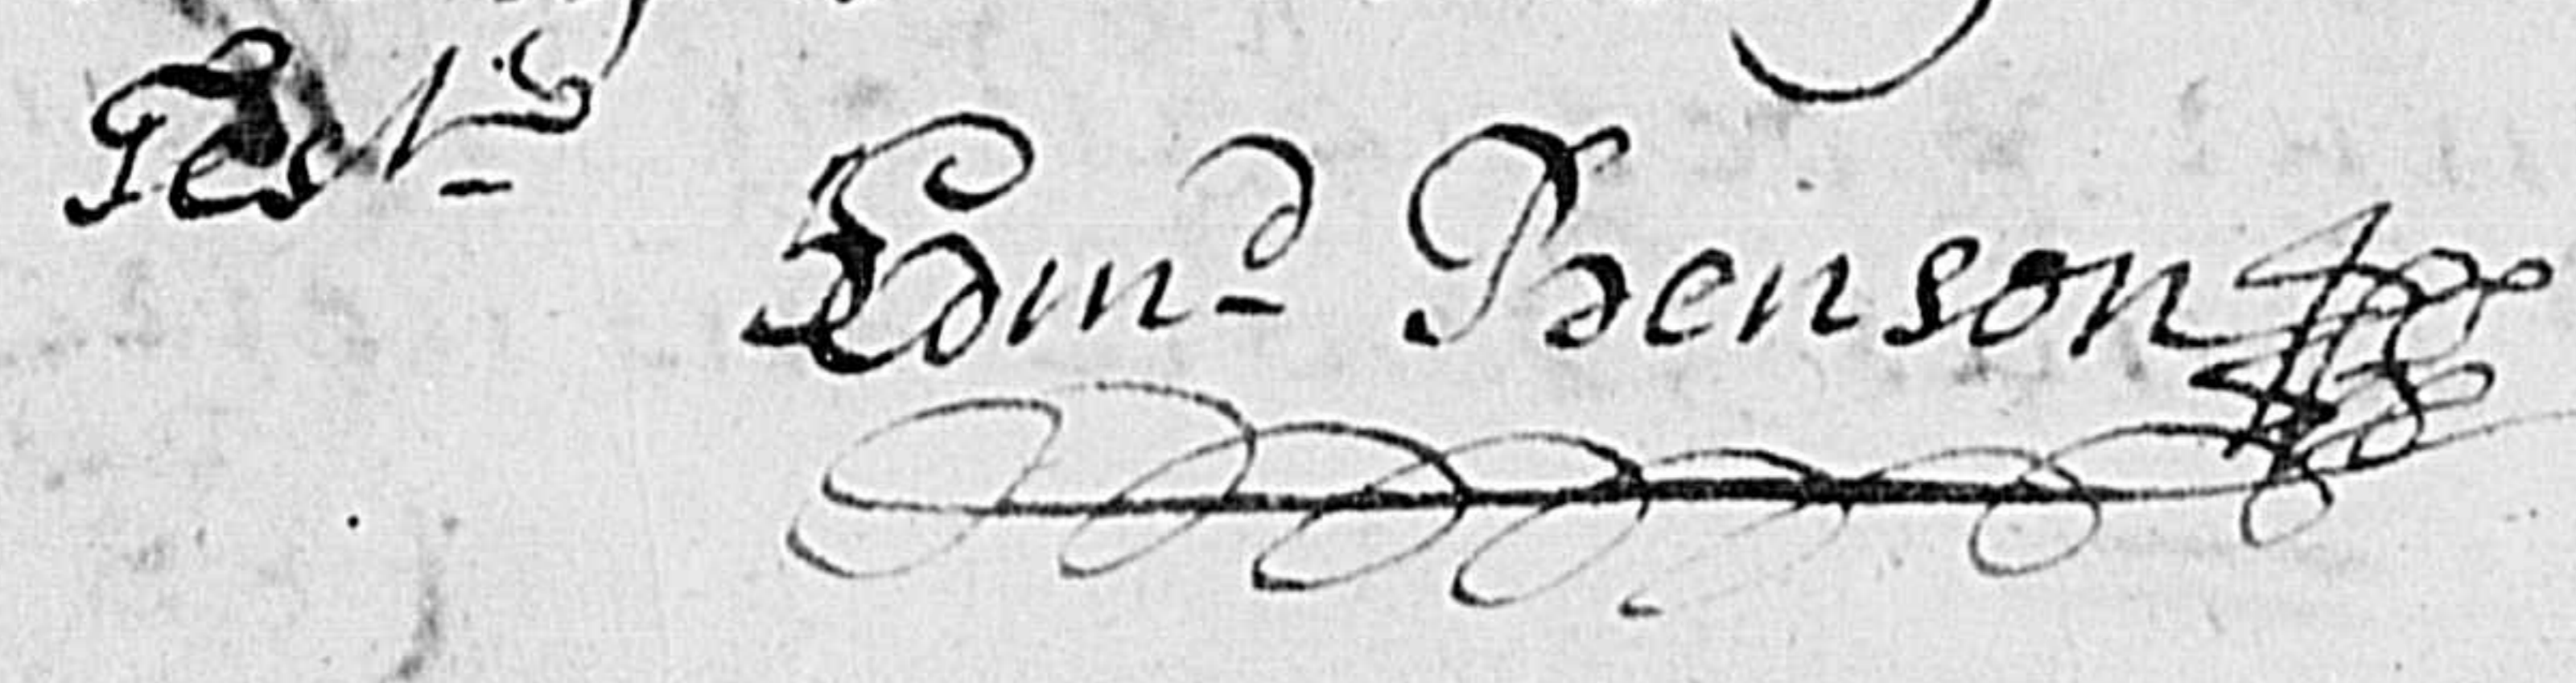 Test.
Edm.d Benson